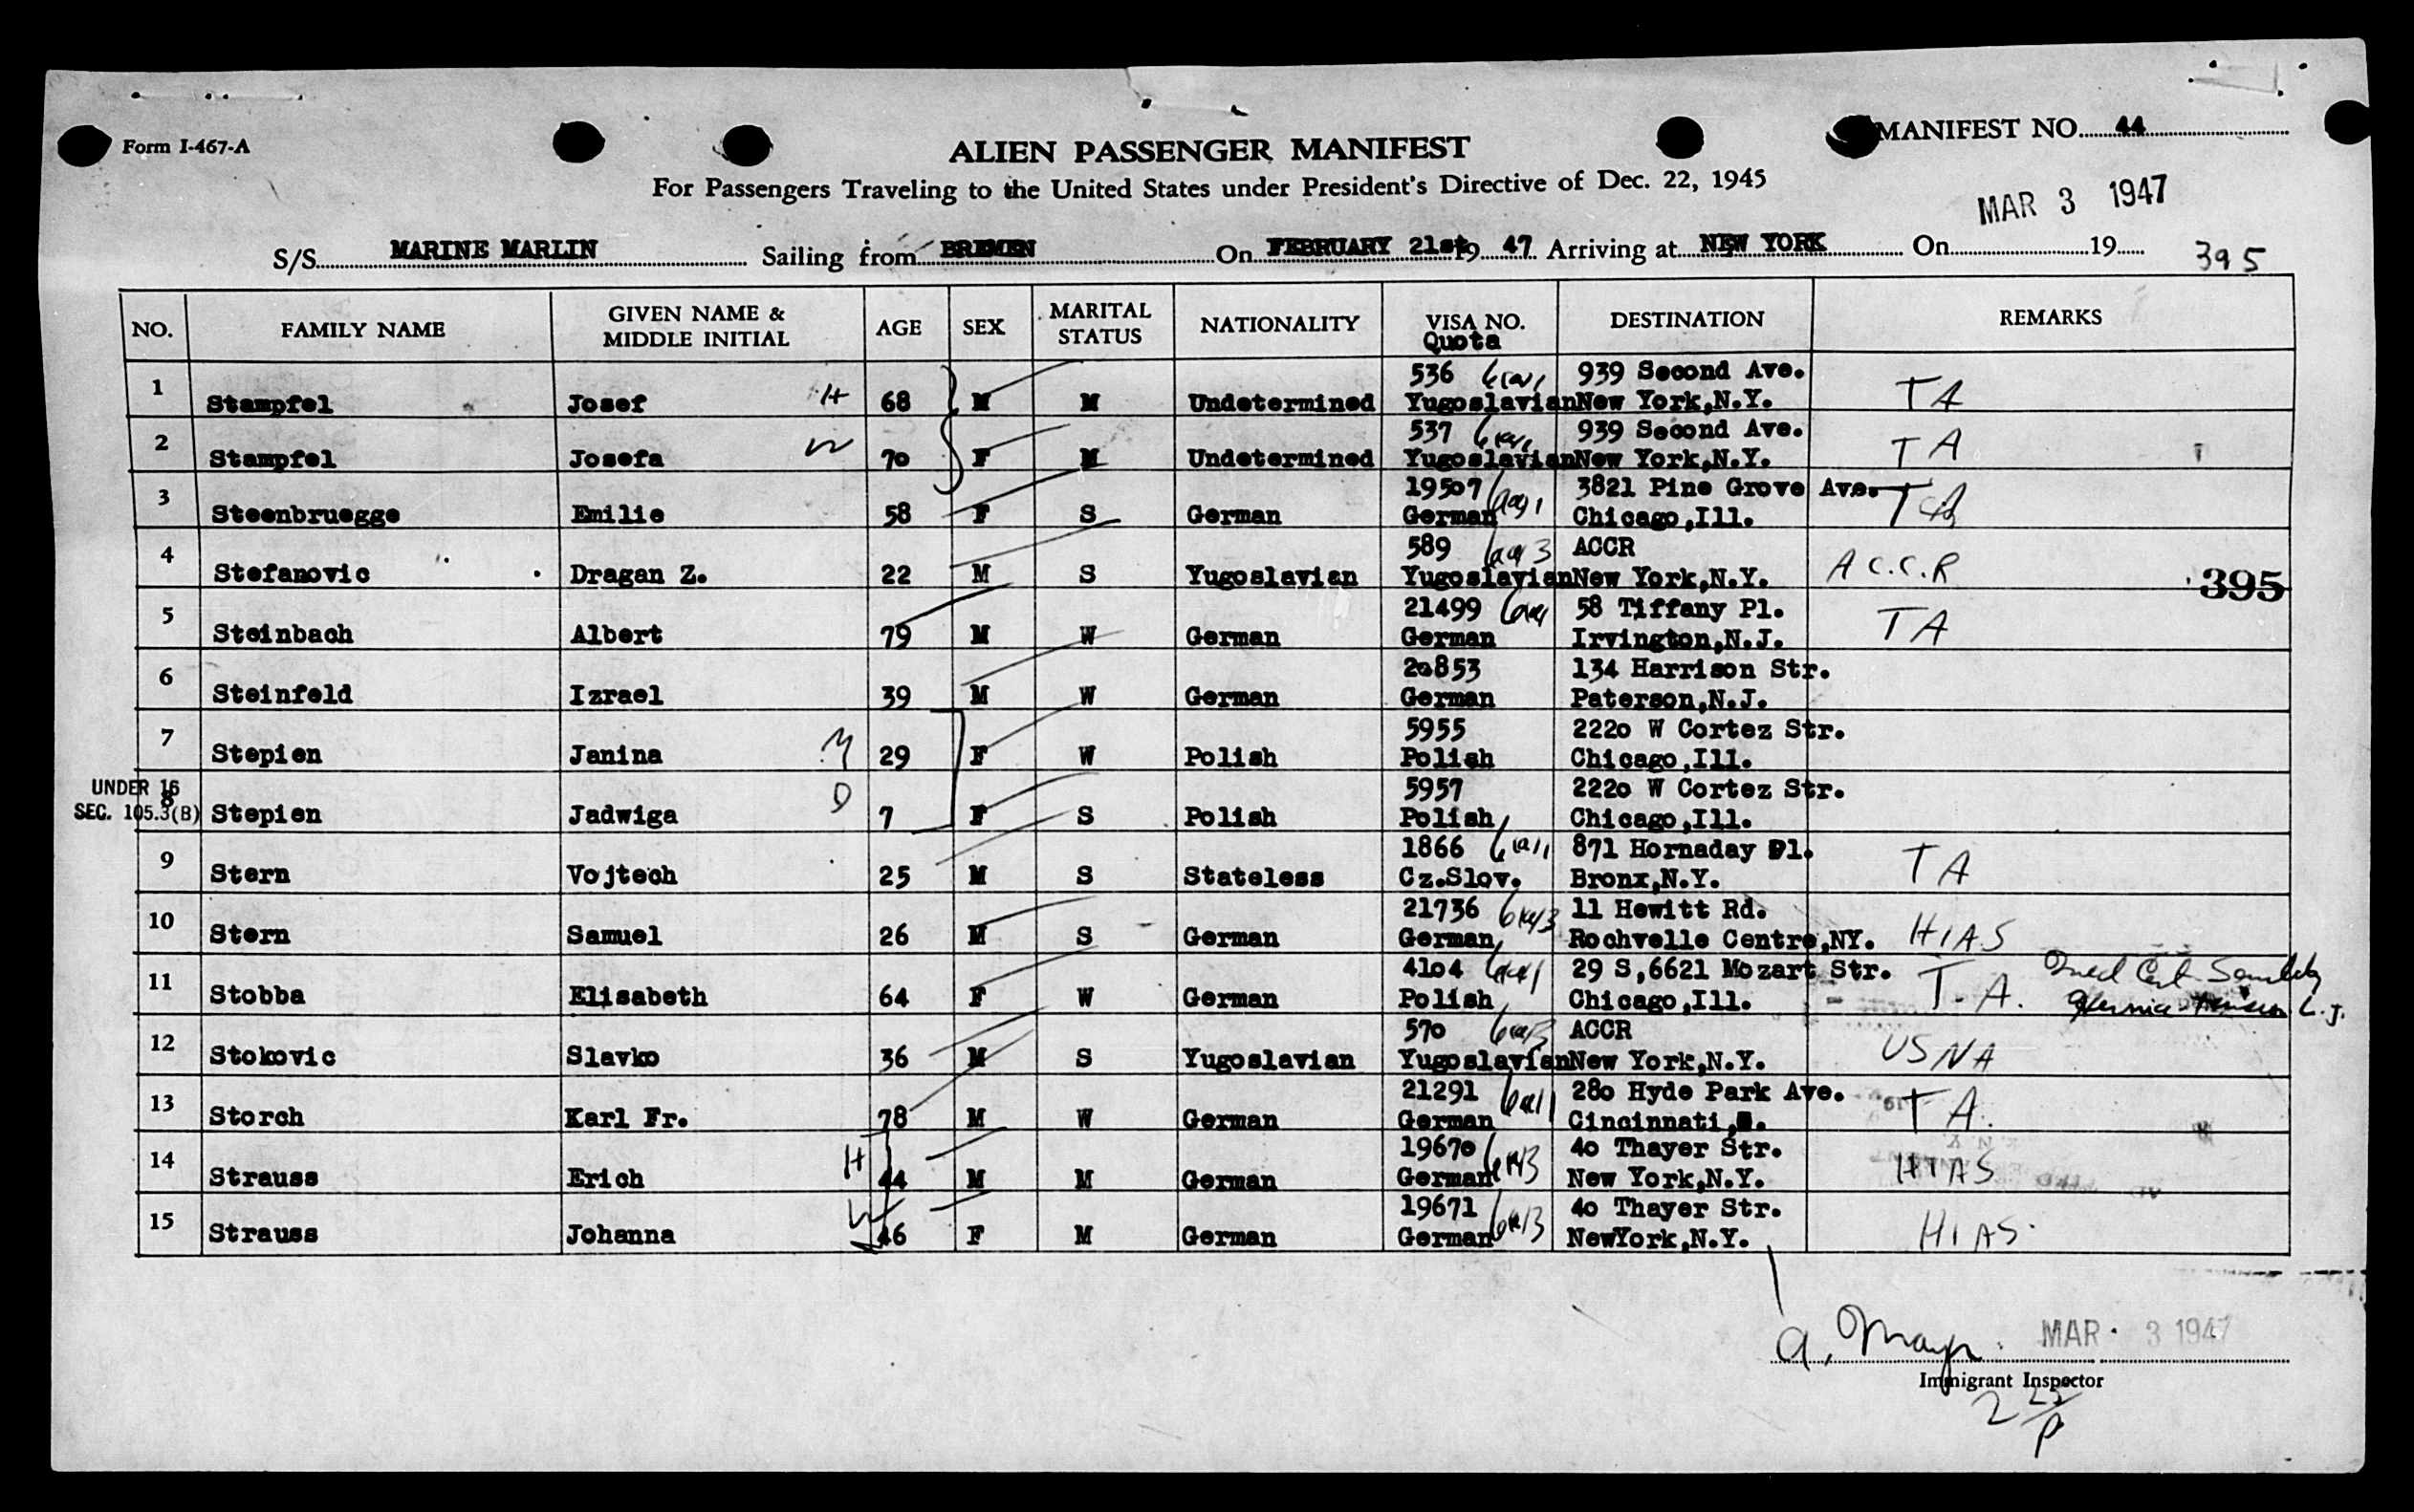 Form I-467-A
ALIEN PASSENGER MANIFEST
MANIFEST NO. 44
For Passengers Traveling to the United States under President's Directive of Dec. 22, 1945
MAR 3 1947
S/S MARINE MARLIN Sailing from BREMEN On FEBRUARY 21st 19 47 Arriving at NEW YORK On 19
395
NO. FAMILY NAME GIVEN NAME & MIDDLE INITIAL AGE SEX MARITAL STATUS NATIONALITY VISA NO. Quota DESTINATION REMARKS
1 536 939 Second Ave.
Stampfel Josef H 68 M M Undetermined Yugoslavian New York,N.Y. TA
2 537 939 Second Ave.
Stampfel Josefa W 70 F M Undetermined Yugoslavian New York,N.Y. TA
3 19507 3821 Pine Grove Ave.
Steenbruegge Emilie 58 F S German German Chicago,Ill.
4 589 ACCR
Stefanovic Dragan Z. 22 M S Yugoslavian Yugoslavian New York,N.Y. A C.C.R
395
5 21499 58 Tiffany Pl.
Steinbach Albert 79 M W German German Irvington,N.J. TA
6 20853 134 Harrison Str.
Steinfeld Izrael 39 M W German German Paterson,N.J.
7 5955 2220 W Cortez Str.
Stepien Janina M 29 F W Polish Polish Chicago,Ill.
UNDER 16
SEC. 105.3(B)
8 5957 2220 W Cortez Str.
Stepien Jadwiga D 7 F S Polish Polish Chicago,Ill.
9 1866 871 Hornaday Pl.
Stern Vojtech 25 M S Stateless Cz.Slov. Bronx,N.Y. TA
10 21736 11 Hewitt Rd.
Stern Samuel 26 M S German German Rochvelle Centre,NY. HIAS
11 4104 29 S,6621 Mozart Str.
Stobba Elisabeth 64 F W German Polish Chicago,Ill. T.A.
12 570 ACCR
Stokovic Slavko 36 M S Yugoslavian Yugoslavian New York,N.Y. USNA
13 21291 280 Hyde Park Ave.
Storch Karl Fr. 78 M W German German Cincinnati, TA.
14 19670 40 Thayer Str.
Strauss Erich H 44 M M German German New York,N.Y. HIAS
15 19671 40 Thayer Str.
Strauss Johanna W 46 F M German German NewYork,N.Y. HIAS.
MAR 3 1947
Immigrant Inspector